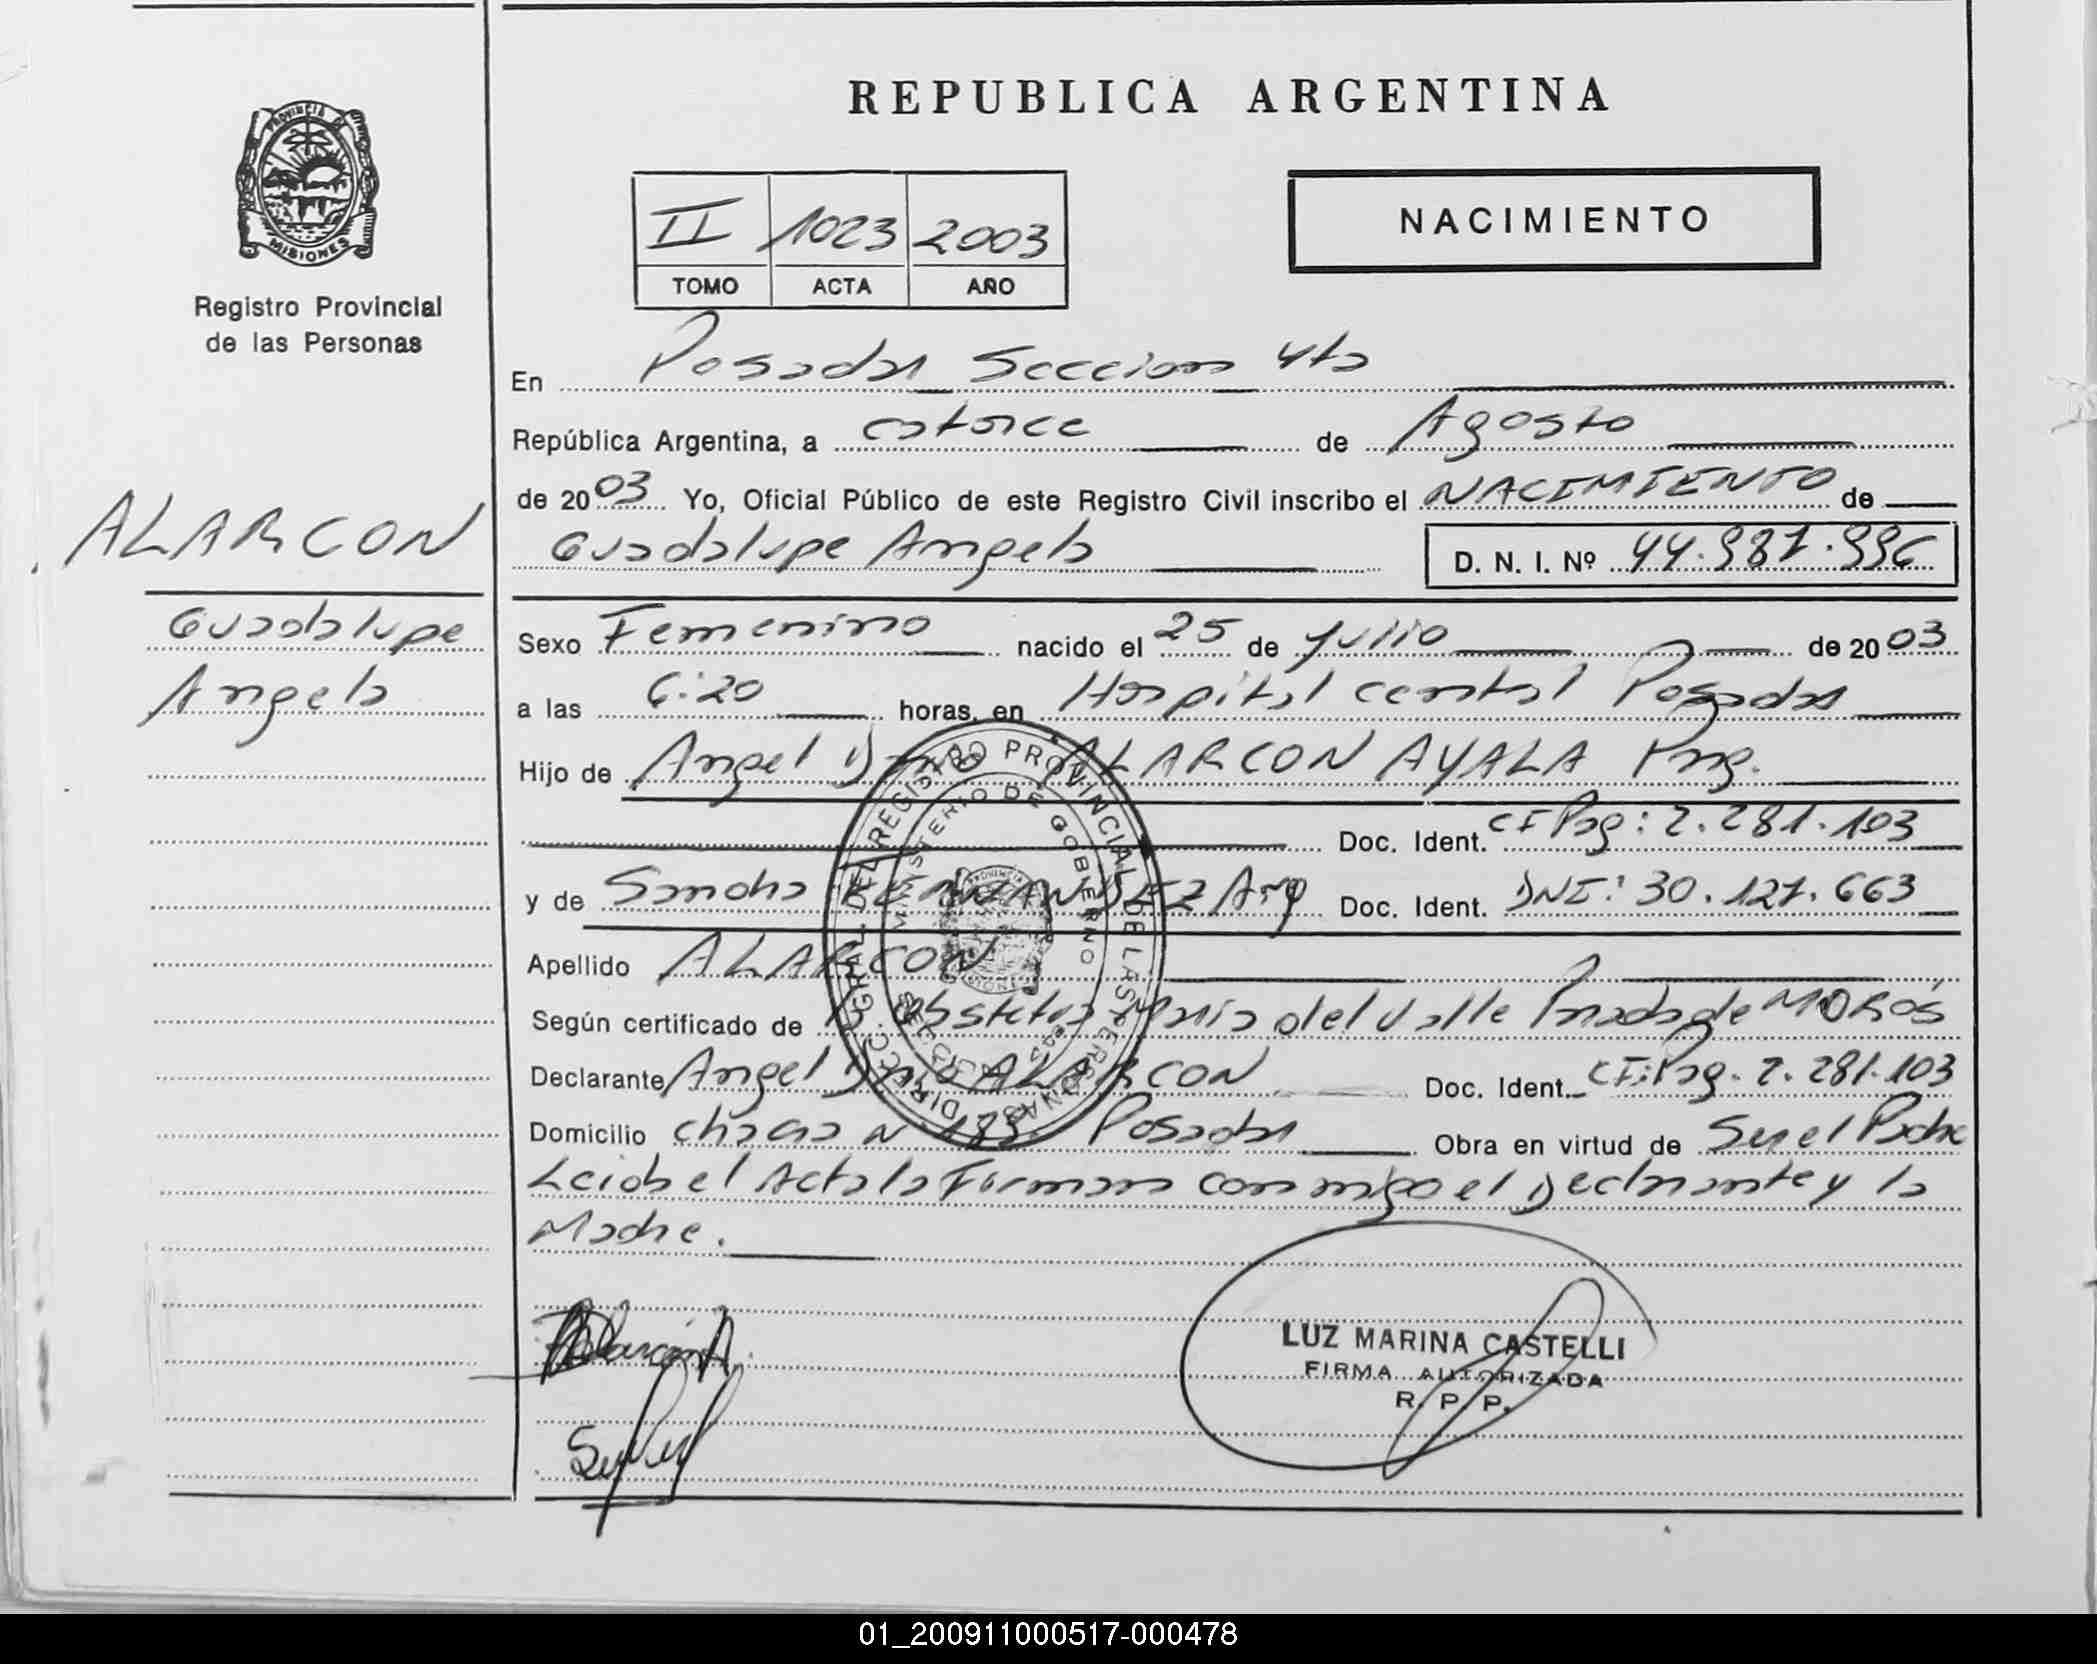 REPUBLICA ARGENTINA
PROVINCIA DE
MISIONES
Registro Provincial
de las Personas
II 1023 2003
TOMO ACTA AÑO
NACIMIENTO
En Posadas Seccion 4ta
República Argentina, a catorce de Agosto
de 2003 Yo, Oficial Público de este Registro Civil inscribo el NACIMIENTO de
Guadalupe Angela D. N. I. Nº 44.987.996
ALARCON
Guadalupe
Angela
Sexo Femenino nacido el 25 de Julio de 2003
a las 6:20 horas, en Hospital central Posadas
Hijo de Angel ALARCON AYALA Prg.
Doc. Ident. CI Pag: 2.281.103
y de Sandra Arg Doc. Ident. DNI: 30.127.663
Apellido ALARCON
Según certificado de Obstetra Maria del Valle de MOROS
Declarante Angel ALARCON Doc. Ident. CI: Pag. 2.281.103
Domicilio chacra N 183. Posadas Obra en virtud de Ser el Padre
Leida el Acta la Firman conmigo el Declarante y la
Madre.
DIRECC. GRAL. DEL REGISTRO PROVINCIAL DE LAS PERSONAS
MINISTERIO DE GOBIERNO
LUZ MARINA CASTELLI
FIRMA AUTORIZADA
R. P. P.
01_200911000517-000478